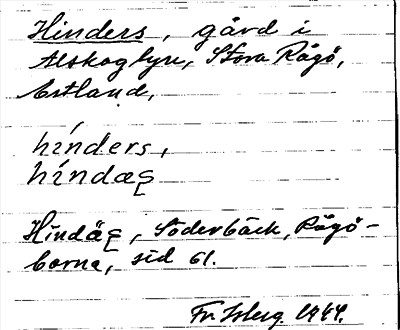 Hinders, gård i
Alskoglyn, Stora Rågö,
Estland,
hínders,
híndæɕ
Hindäç, Söderbäck, Rågö-
borna, sid 61.
Fr. Isberg 1944.